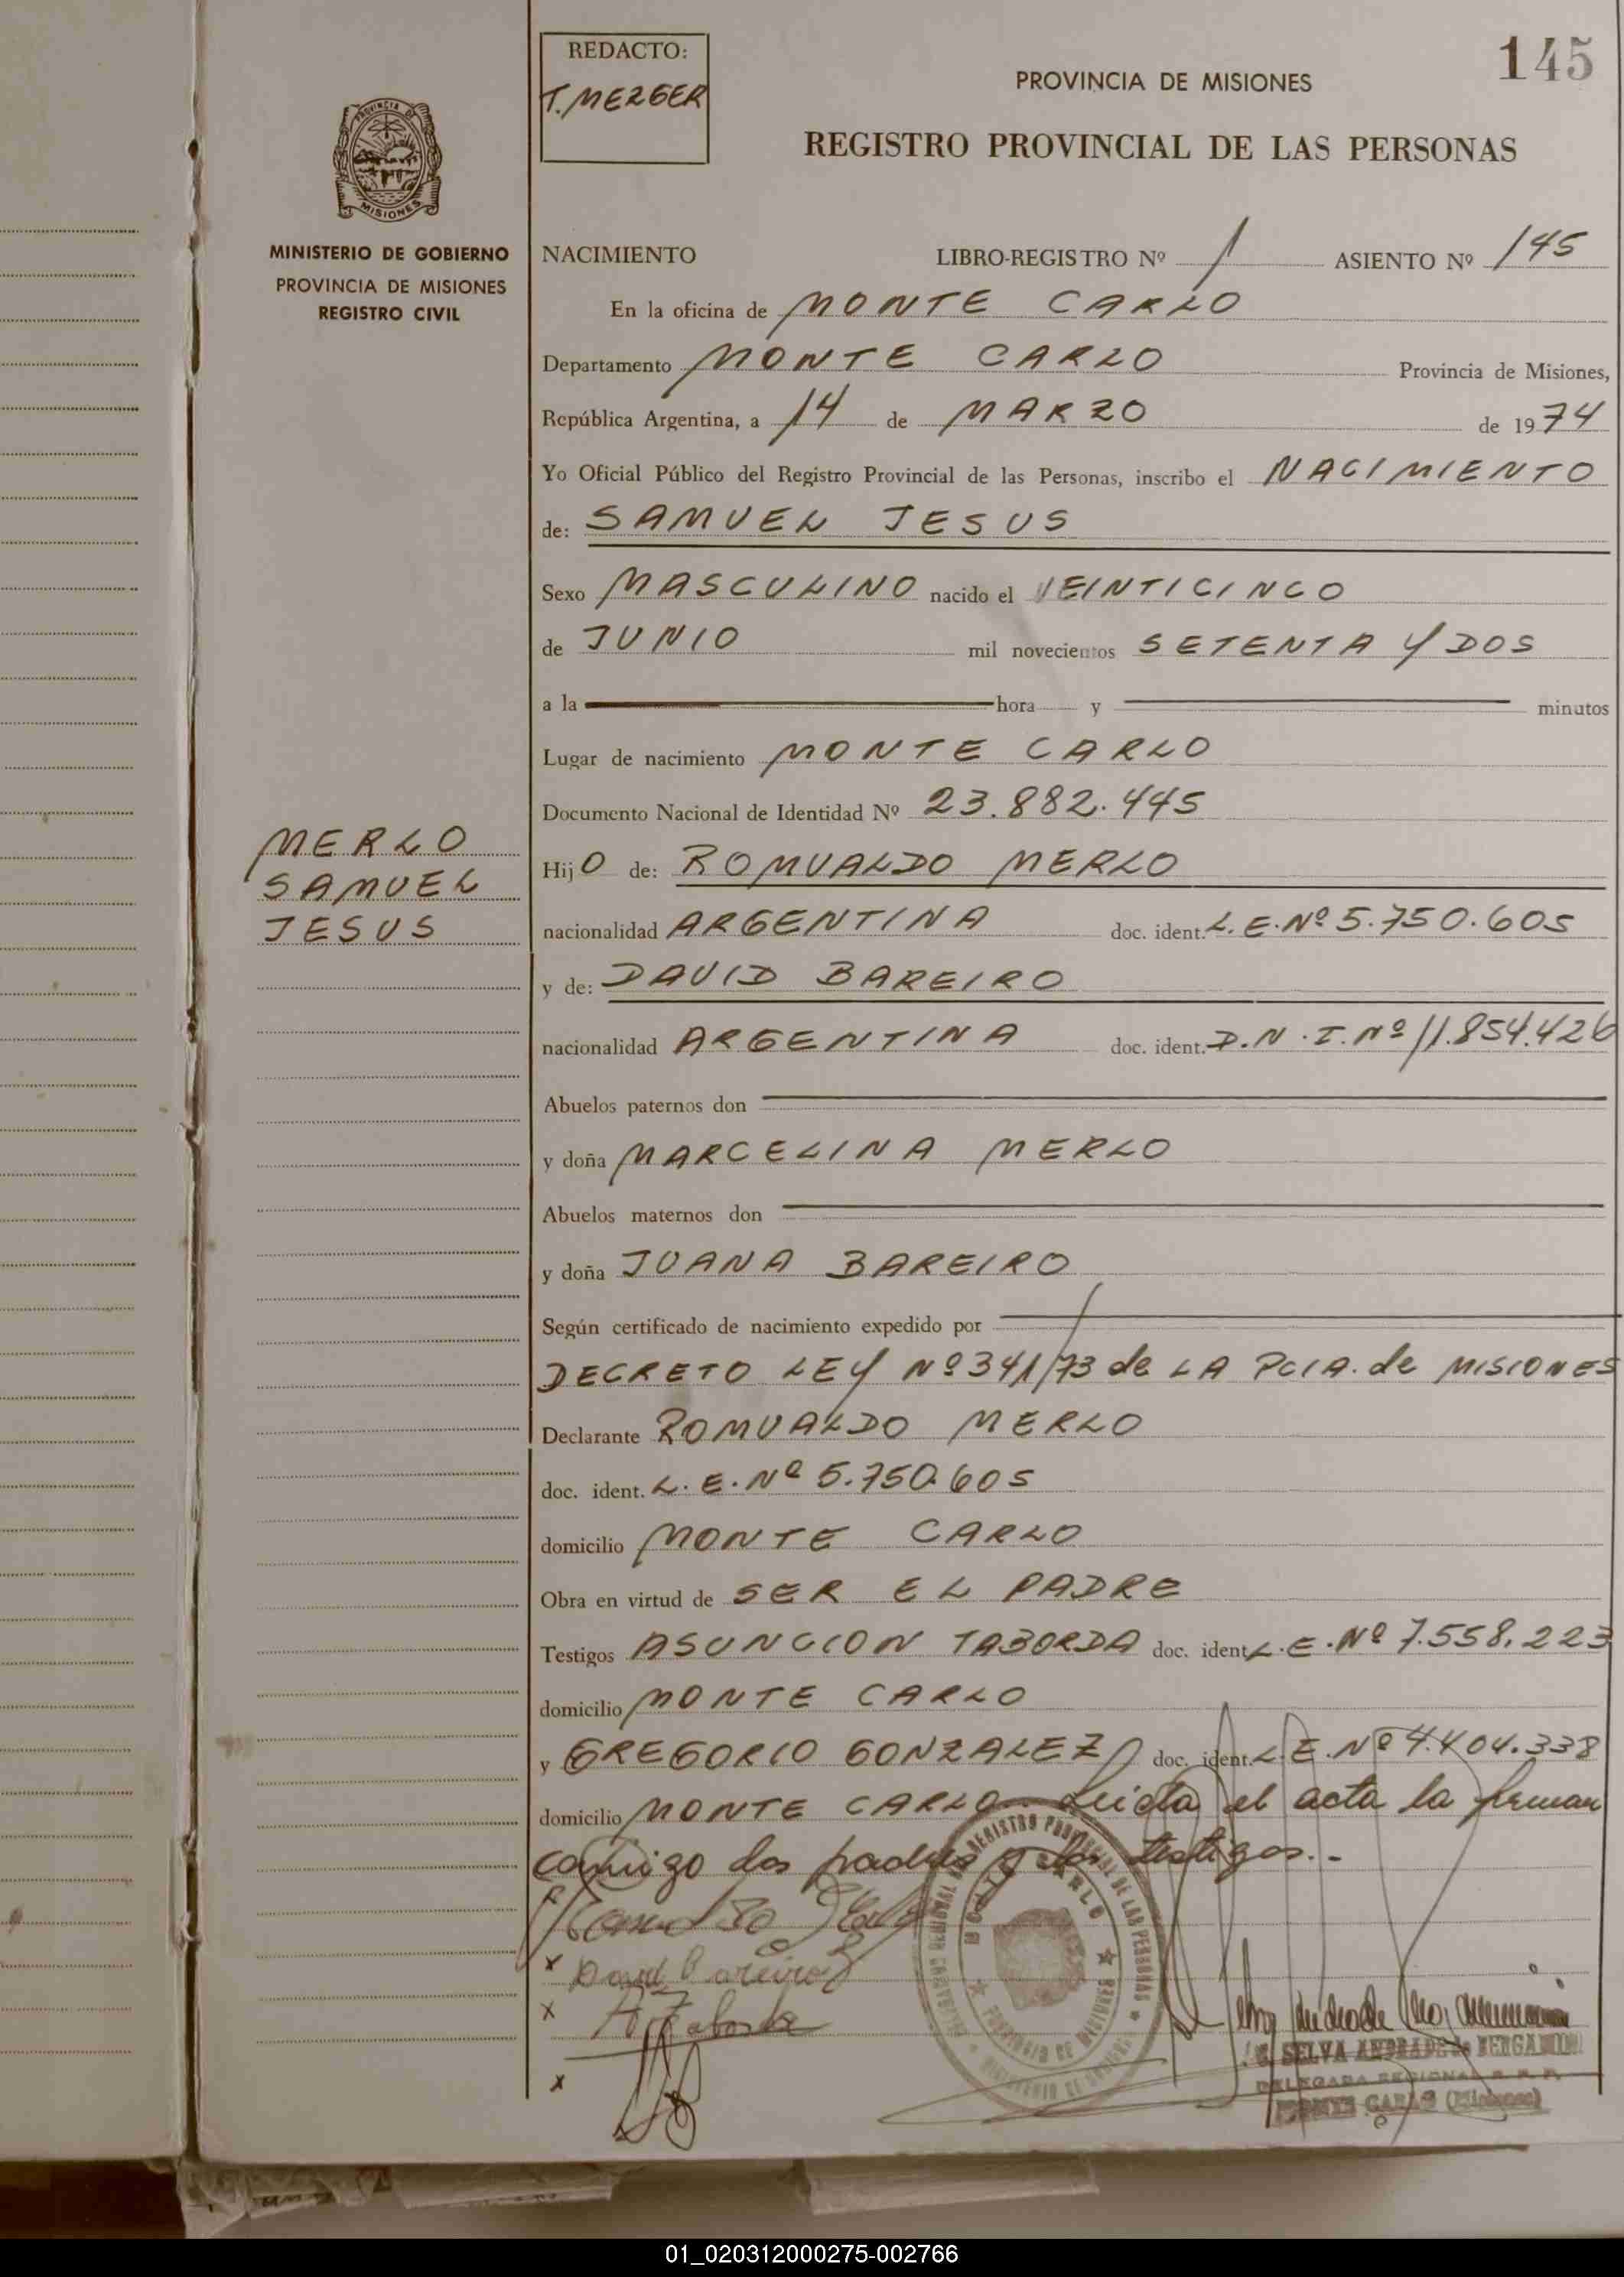 REDACTO:
T. MEZGER
145
PROVINCIA DE MISIONES
REGISTRO PROVINCIAL DE LAS PERSONAS
PROVINCIA DE
MISIONES
MINISTERIO DE GOBIERNO
PROVINCIA DE MISIONES
REGISTRO CIVIL
NACIMIENTO LIBRO-REGISTRO Nº 1 ASIENTO Nº 145
En la oficina de MONTE CARLO
Departamento MONTE CARLO Provincia de Misiones,
República Argentina, a 14 de MARZO de 1974
Yo Oficial Público del Registro Provincial de las Personas, inscribo el NACIMIENTO
de: SAMUEL JESUS
Sexo MASCULINO nacido el VEINTICINCO
de JUNIO mil novecientos SETENTA Y DOS
a la hora y minutos
Lugar de nacimiento MONTE CARLO
Documento Nacional de Identidad Nº 23.882.445
MERLO
SAMUEL
JESUS
HijO de: ROMUALDO MERLO
nacionalidad ARGENTINA doc. ident. L.E.Nº 5.750.605
y de: DAVID BAREIRO
nacionalidad ARGENTINA doc. ident. D.N.I.Nº 11.854.426
Abuelos paternos don
y doña MARCELINA MERLO
Abuelos maternos don
y doña JUANA BAREIRO
Según certificado de nacimiento expedido por
DECRETO LEY Nº 341/73 de LA PCIA. de MISIONES
Declarante ROMUALDO MERLO
doc. ident. L.E.Nº 5.750.605
domicilio MONTE CARLO
Obra en virtud de SER EL PADRE
Testigos ASUNCION TABORDA doc. ident. L.E.Nº 7.558.223
domicilio MONTE CARLO
y GREGORIO GONZALEZ doc. ident. L.E.Nº 4.404.338
domicilio MONTE CARLO. Leida el acta la firman
conmigo los padres y los testigos.-
x David Bareiro
x A. Taborda
x
SELVA ANDRADE de BERGAMINI
DELEGADA REGIONAL R. P. P.
MONTE CARLO (Misiones)
01_020312000275-002766